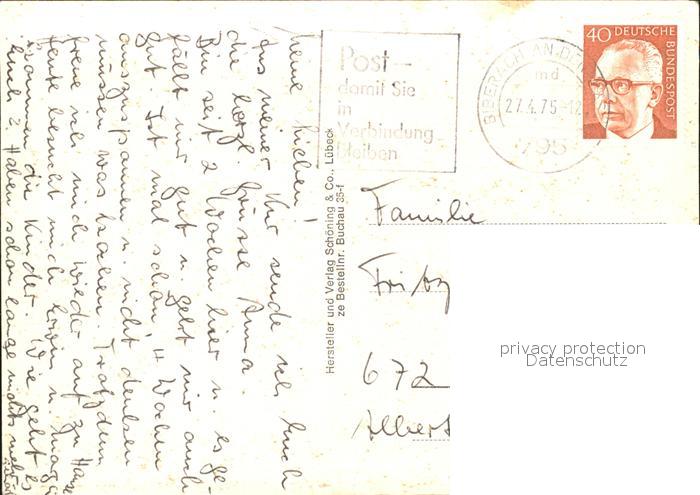 Post –
damit Sie
in
Verbindung
bleiben
BIBERACH AN DER
md
27.4.75-12
795
40 DEUTSCHE
BUNDESPOST
Meine Lieben!
Aus meiner Kur sende ich Euch
die herzl. Grüsse Anna.
Bin seit 2 Wochen hier u. es ge-
fällt mir gut u. geht mir auch
gut. Ist mal schön, 4 Wochen
auszuspannen u. nicht denken
müssen was kochen. Trotzdem
freue ich mich wieder auf zu Hause
Heute besucht mich
kommen die Kinder. Wie geht es
Euch? Haben schon lange nichts mehr
Hersteller und Verlag Schöning & Co., Lübeck
ze Bestellnr. Buchau 35-f
Familie
Fritz
672
Albert
privacy protection
Datenschutz